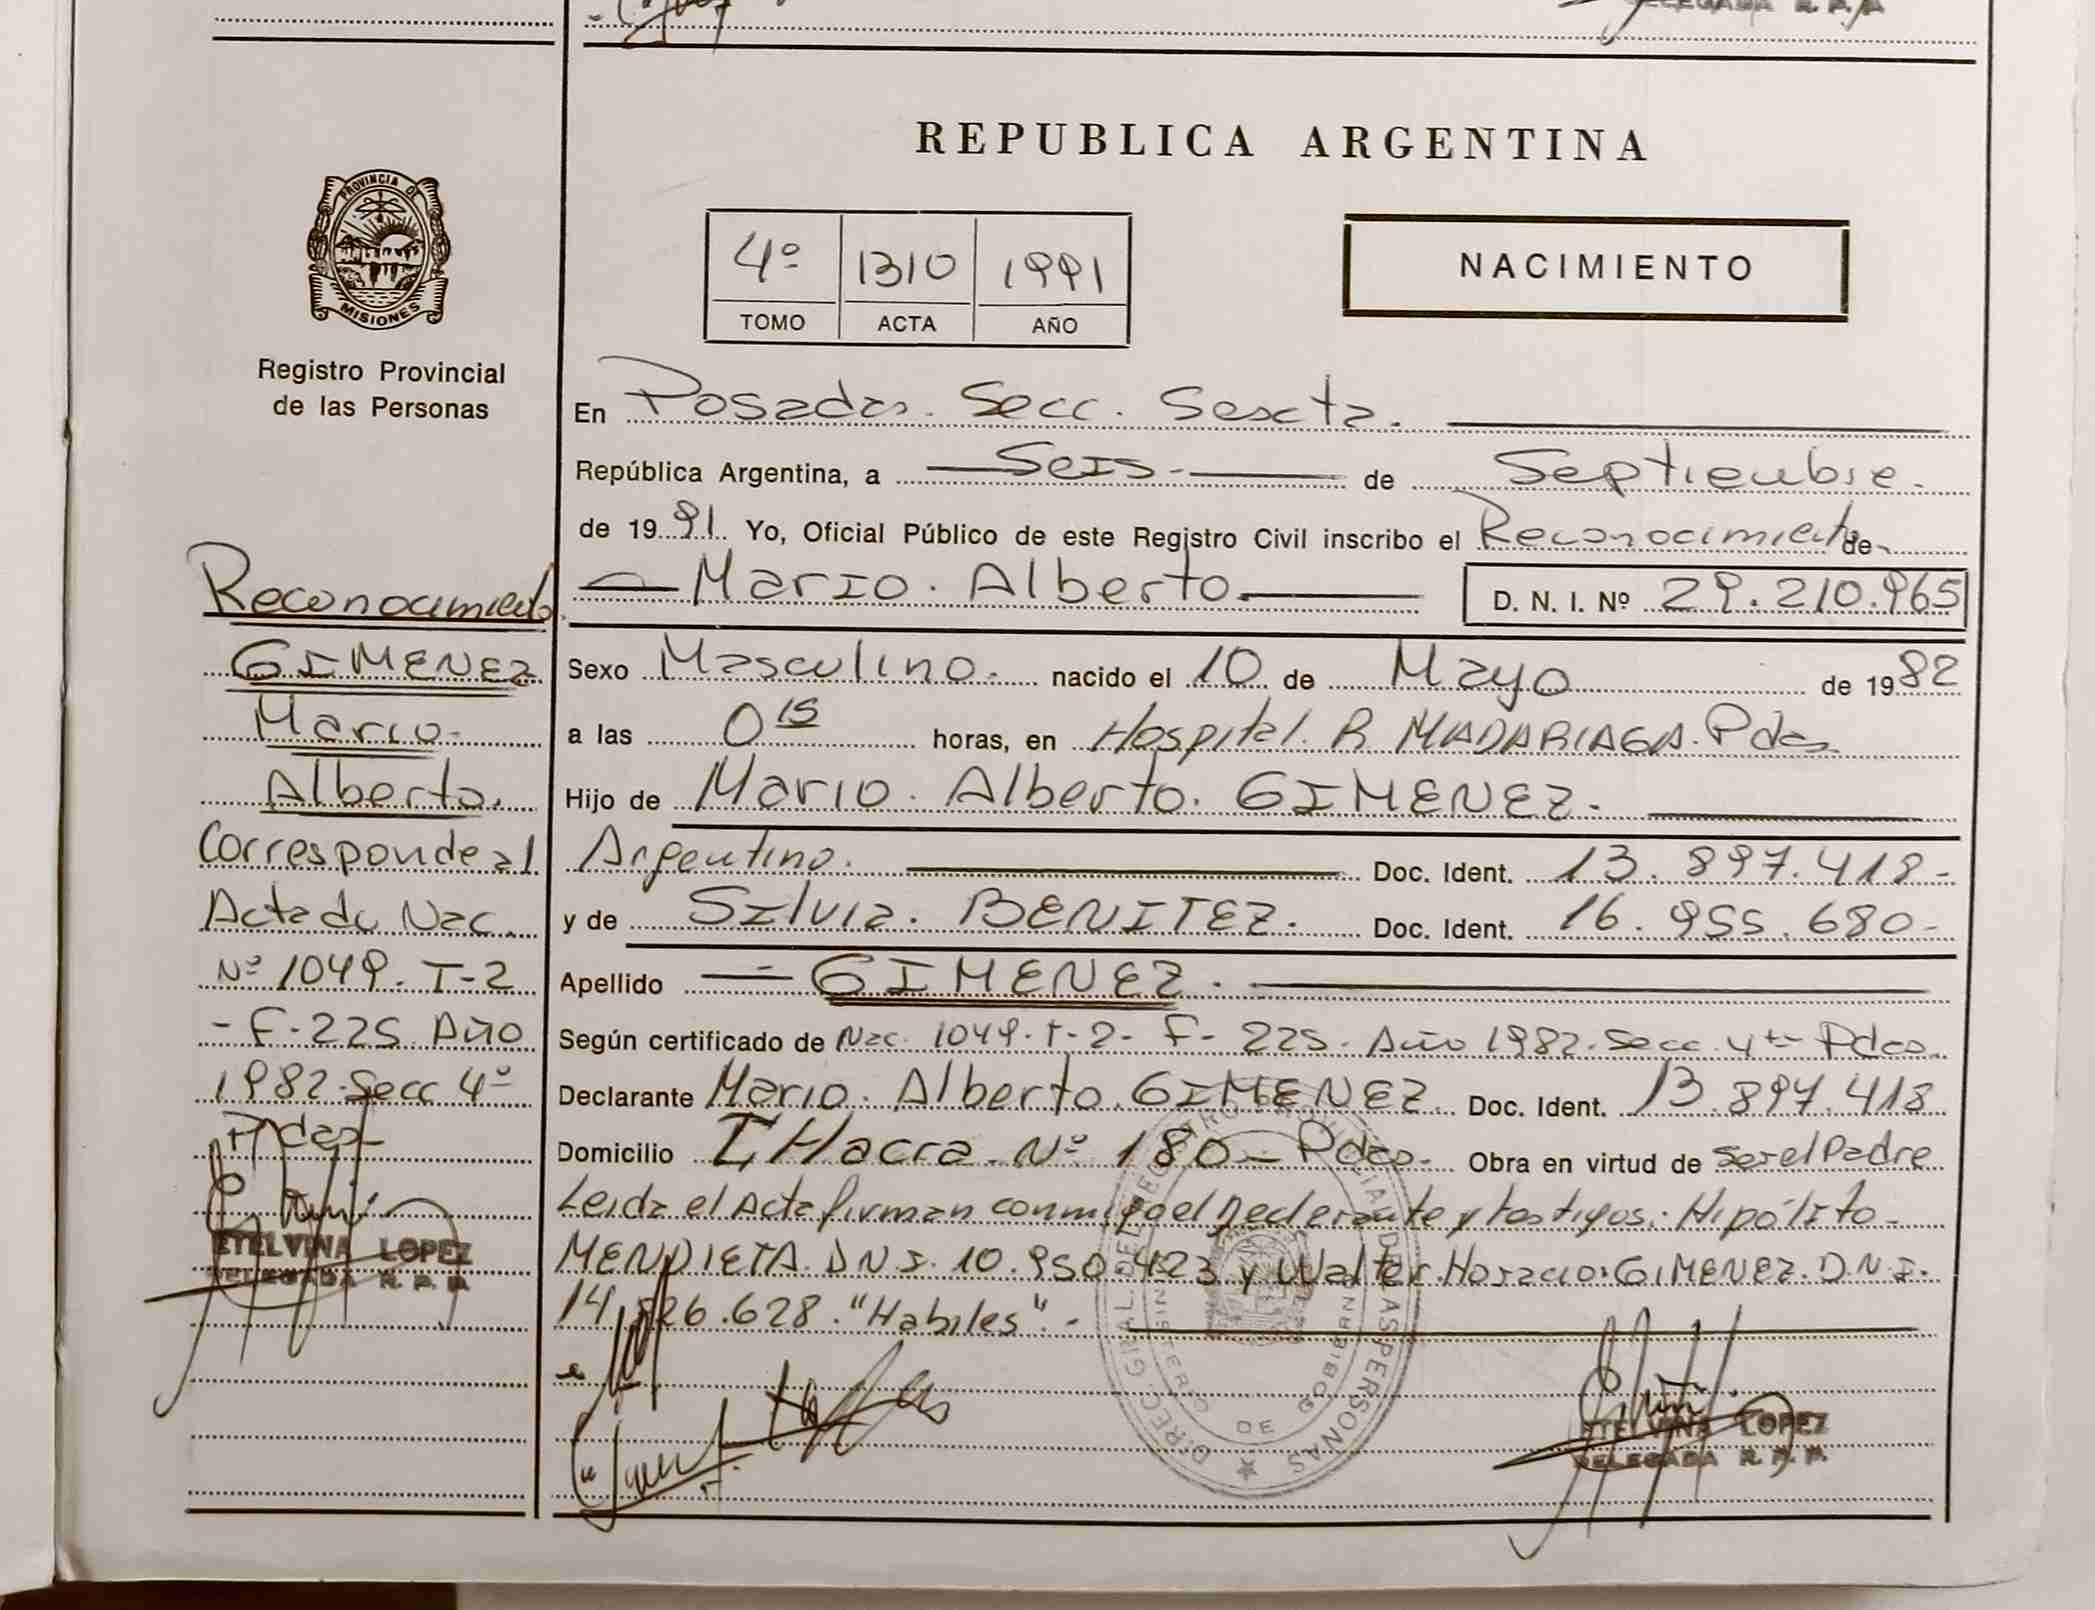 DELEGADA R. P. P.
REPUBLICA ARGENTINA
PROVINCIA DE
MISIONES
Registro Provincial
de las Personas
4º 1310 1991
TOMO ACTA AÑO
NACIMIENTO
En Posadas. Secc. Sexta.
República Argentina, a Seis. de Septiembre.
de 1991. Yo, Oficial Público de este Registro Civil inscribo el Reconocimiento de
Mario. Alberto. D. N. I. Nº 29.210.965
Sexo Masculino. nacido el 10 de Mayo de 1982
a las 0 15 horas, en Hospital. R. MADARIAGA. Pdas
Hijo de Mario. Alberto. GIMENEZ.
Argentino. Doc. Ident. 13.897.418-
y de Silvia. BENITEZ. Doc. Ident. 16.955.680-
Apellido GIMENEZ.
Según certificado de Nac. 1049. T-2- F- 225. Año 1982. Secc. 4ta Pdas.
Declarante Mario. Alberto. GIMENEZ. Doc. Ident. 13.897.418
Domicilio CHacra. Nº 180- Pdas. Obra en virtud de ser el Padre
Leida el Acta firman conmigo el Declarante y testigos: Hipólito
MENDIETA. D.N.I. 10.950.423 y Walter. Horacio. GIMENEZ. D.N.I.
14. 26.628. "Habiles".-
Reconocimiento
GIMENEZ
Mario.
Alberto.
Corresponde al
Acta de Nac.
Nº 1049. T-2
- F-225 Año
1982. Secc 4º
Pdas-
ETELVINA LOPEZ
DELEGADA R. P. P.
DIREC. GRAL. DEL REGISTRO PROVINCIAL DE LAS PERSONAS
MINISTERIO DE GOBIERNO
ETELVINA LOPEZ
DELEGADA R. P. P.